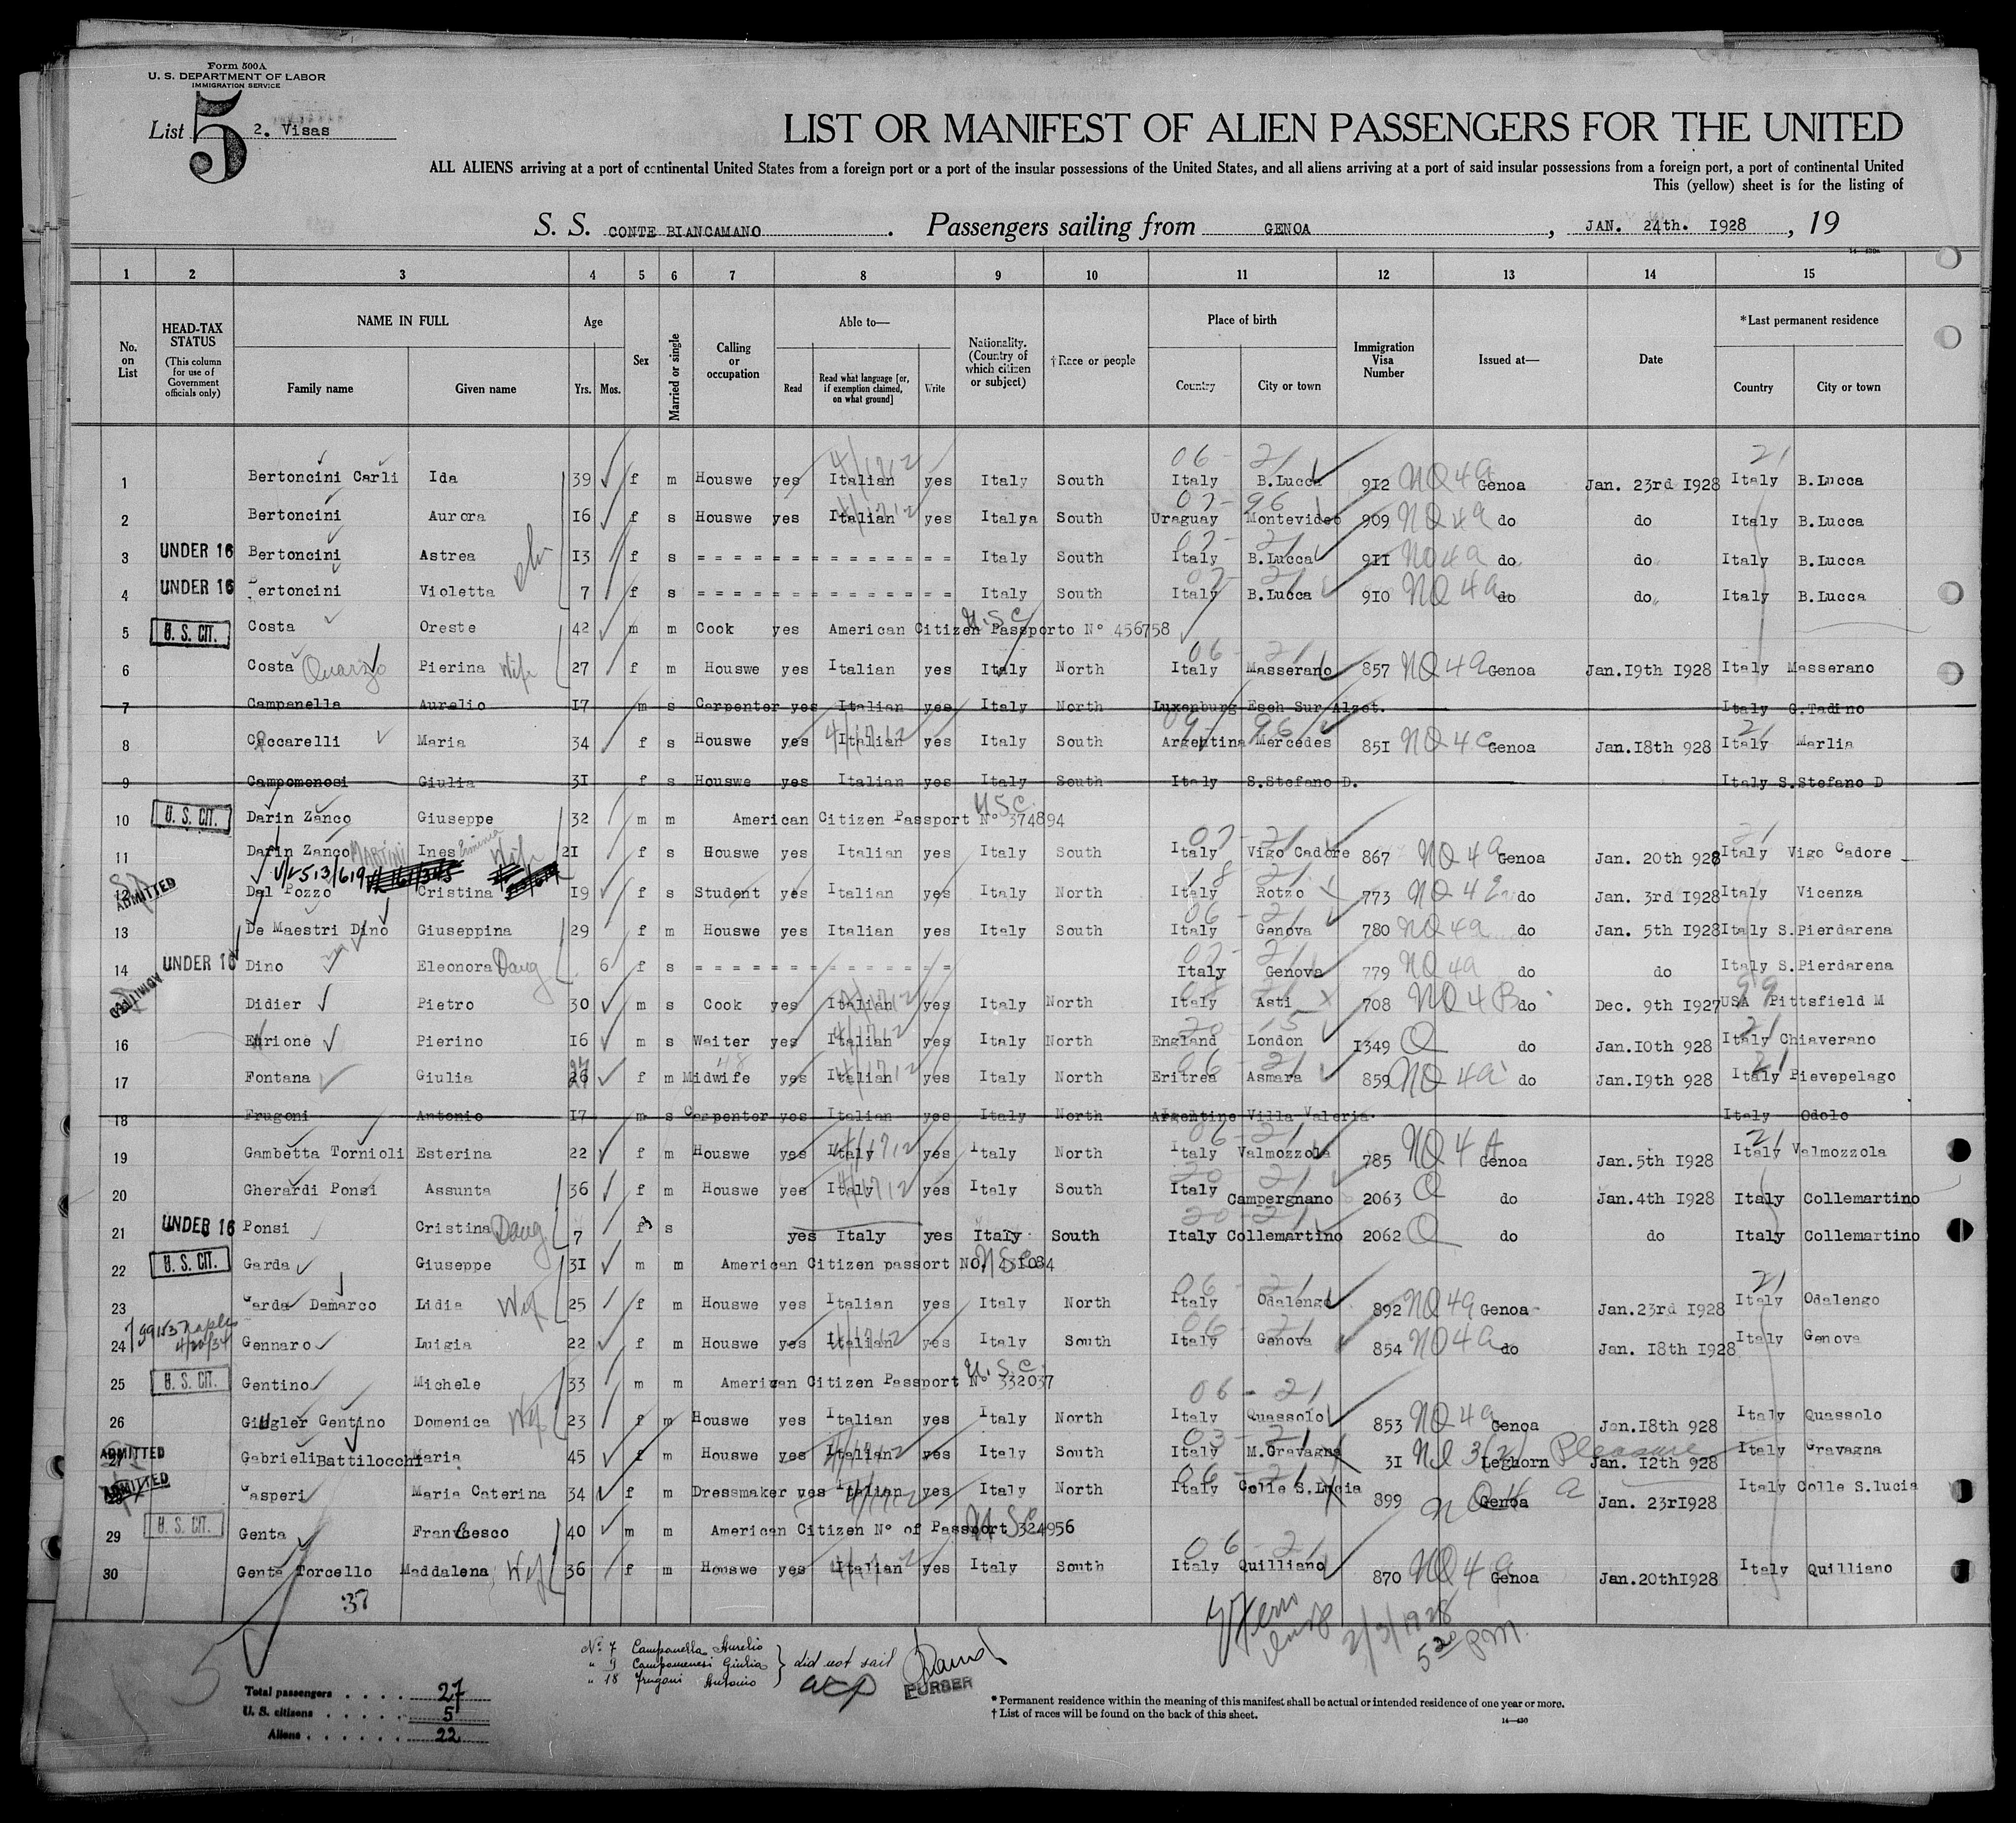 Form 500A
U. S. DEPARTMENT OF LABOR
IMMIGRATION SERVICE
List 5 2. Visas
LIST OR MANIFEST OF ALIEN PASSENGERS FOR THE UNITED
ALL ALIENS arriving at a port of continental United States from a foreign port or a port of the insular possessions of the United States, and all aliens arriving at a port of said insular possessions from a foreign port, a port of continental United
This (yellow) sheet is for the listing of
S. S. CONTE BIANCAMANO. Passengers sailing from GENOA, JAN. 24th. 1928, 19
1 2 3 4 5 6 7 8 9 10 11 12 13 14 15
No. on List HEAD-TAX STATUS (This column for use of Government officials only) NAME IN FULL Family name Given name Age Yrs. Mos. Sex Married or single Calling or occupation Able to— Read Read what language [or, if exemption claimed, on what ground] Write Nationality. (Country of which citizen or subject) †Race or people Place of birth Country City or town Immigration Visa Number Issued at— Date *Last permanent residence Country City or town
1 Bertoncini Carli Ida 39 f m Houswe yes Italian yes Italy South Italy B.Lucca 912 NQ 4a Genoa Jan. 23rd 1928 Italy B.Lucca
2 Bertoncini Aurora 16 f s Houswe yes Italian yes Italya South Uraguay Montevideo 909 NQ 4a do do Italy B.Lucca
3 UNDER 16 Bertoncini Astrea 13 f s = = = = = = = = = = = = = Italy South Italy B.Lucca 911 NQ 4a do do Italy B.Lucca
4 UNDER 16 Bertoncini Violetta 7 f s = = = = = = = = = = = = = Italy South Italy B.Lucca 910 NQ 4a do do Italy B.Lucca
5 U. S. CIT. Costa Oreste 42 m m Cook yes American Citizen Passporto N° 456758 U.S.C.
6 Costa Quarizo Pierina Wife 27 f m Houswe yes Italian yes Italy North Italy Masserano 857 NQ 4a Genoa Jan.19th 1928 Italy Masserano
7 Campanella Aurelio 17 m s Carpenter yes Italian yes Italy North Luxenburg Esch Sur Alzet. Italy G.Tadino
8 Ceccarelli Maria 34 f s Houswe yes Italian yes Italy South Argentina Mercedes 851 NQ 4c Genoa Jan.18th 928 Italy Marlia
9 Campomenosi Giulia 31 f s Houswe yes Italian yes Italy South Italy S.Stefano D. Italy S.Stefano D
10 U. S. CIT. Darin Zanco Giuseppe 32 m m American Citizen Passport N° 374894 U.S.C.
11 Darin Zanco MARTINI Ines Erminia Wife 21 f s Houswe yes Italian yes Italy South Italy Vigo Cadore 867 NQ 4a Genoa Jan. 20th 928 Italy Vigo Cadore
V/L 513/619
12 ADMITTED Dal Pozzo Cristina 19 f s Student yes Italian yes Italy North Italy Rotzo 773 NQ 4e do Jan. 3rd 1928 Italy Vicenza
13 De Maestri Dino Giuseppina 29 f m Houswe yes Italian yes Italy South Italy Genova 780 NQ 4a do Jan. 5th 1928 Italy S.Pierdarena
14 UNDER 16 Dino Eleonora Daug 6 f s = = = = = = = = = = = = = Italy Genova 779 NQ 4a do do Italy S.Pierdarena
ADMITTED Didier Pietro 30 m s Cook yes Italian yes Italy North Italy Asti 708 NQ 4B do Dec. 9th 1927 USA Pittsfield M
16 Enrione Pierino 16 m s Waiter yes Italian yes Italy North England London 1349 Q do Jan.10th 928 Italy Chiaverano
17 Fontana Giulia 26 f m Midwife yes Italian yes Italy North Eritrea Asmara 859 NQ 4a do Jan.19th 928 Italy Pievepelago
18 Frugoni Antonio 17 m s Carpenter yes Italian yes Italy North Argentine Villa Valeria Italy Odolo
19 Gambetta Tornioli Esterina 22 f m Houswe yes Italy yes Italy North Italy Valmozzola 785 NQ 4A Genoa Jan.5th 1928 Italy Valmozzola
20 Gherardi Ponsi Assunta 36 f m Houswe yes Italy yes Italy South Italy Campergnano 2063 Q do Jan.4th 1928 Italy Collemartino
21 UNDER 16 Ponsi Cristina Daug 7 f s yes Italy yes Italy South Italy Collemartino 2062 Q do do Italy Collemartino
22 U. S. CIT. Garda Giuseppe 31 m m American Citizen passort NO. U.S.C.
23 Garda Damarco Lidia Wife 25 f m Houswe yes Italian yes Italy North Italy Odalengo 892 NQ 4a Genoa Jan.23rd 1928 Italy Odalengo
24 Naples 4/20/34 Gennaro Luigia 22 f m Houswe yes Italian yes Italy South Italy Genova 854 NQ 4a do Jan. 18th 1928 Italy Genova
25 U. S. CIT. Gentino Michele 33 m m American Citizen Passport N° 332037 U.S.C.
26 Giugler Gentino Domenica Wife 23 f m Houswe yes Italian yes Italy North Italy Quassolo 853 NQ 4a Genoa Jan.18th 928 Italy Quassolo
27 ADMITTED Gabrieli Battilocchi Maria 45 f m Houswe yes Italian yes Italy South Italy M.Gravagna 31 NI 3(2) Leghorn Pleasure Jan. 12th 928 Italy Gravagna
28 ADMITTED Gasperi Maria Caterina 34 f m Dressmaker yes Italian yes Italy North Italy Colle S.Lucia 899 NQ 4 a Genoa Jan. 23r1928 Italy Colle S.lucia
29 U. S. CIT. Genta Francesco 40 m m American Citizen N° of Passport 324956 U.S.C.
30 Genta Torcello Maddalena Wife 36 f m Houswe yes Italian yes Italy South Italy Quilliano 870 NQ 4a Genoa Jan.20th1928 Italy Quilliano
37
2/3/1928
5 20 PM.
N° 7 Campanella Aurelio
" 9 Campomenesi Giulia } did not sail
" 18 Frugoni Antonio
PURSER
Total passengers . . . . 27
U. S. citizens . . . . . 5
Aliens . . . . . . 22
* Permanent residence within the meaning of this manifest shall be actual or intended residence of one year or more.
† List of races will be found on the back of this sheet.
14—430